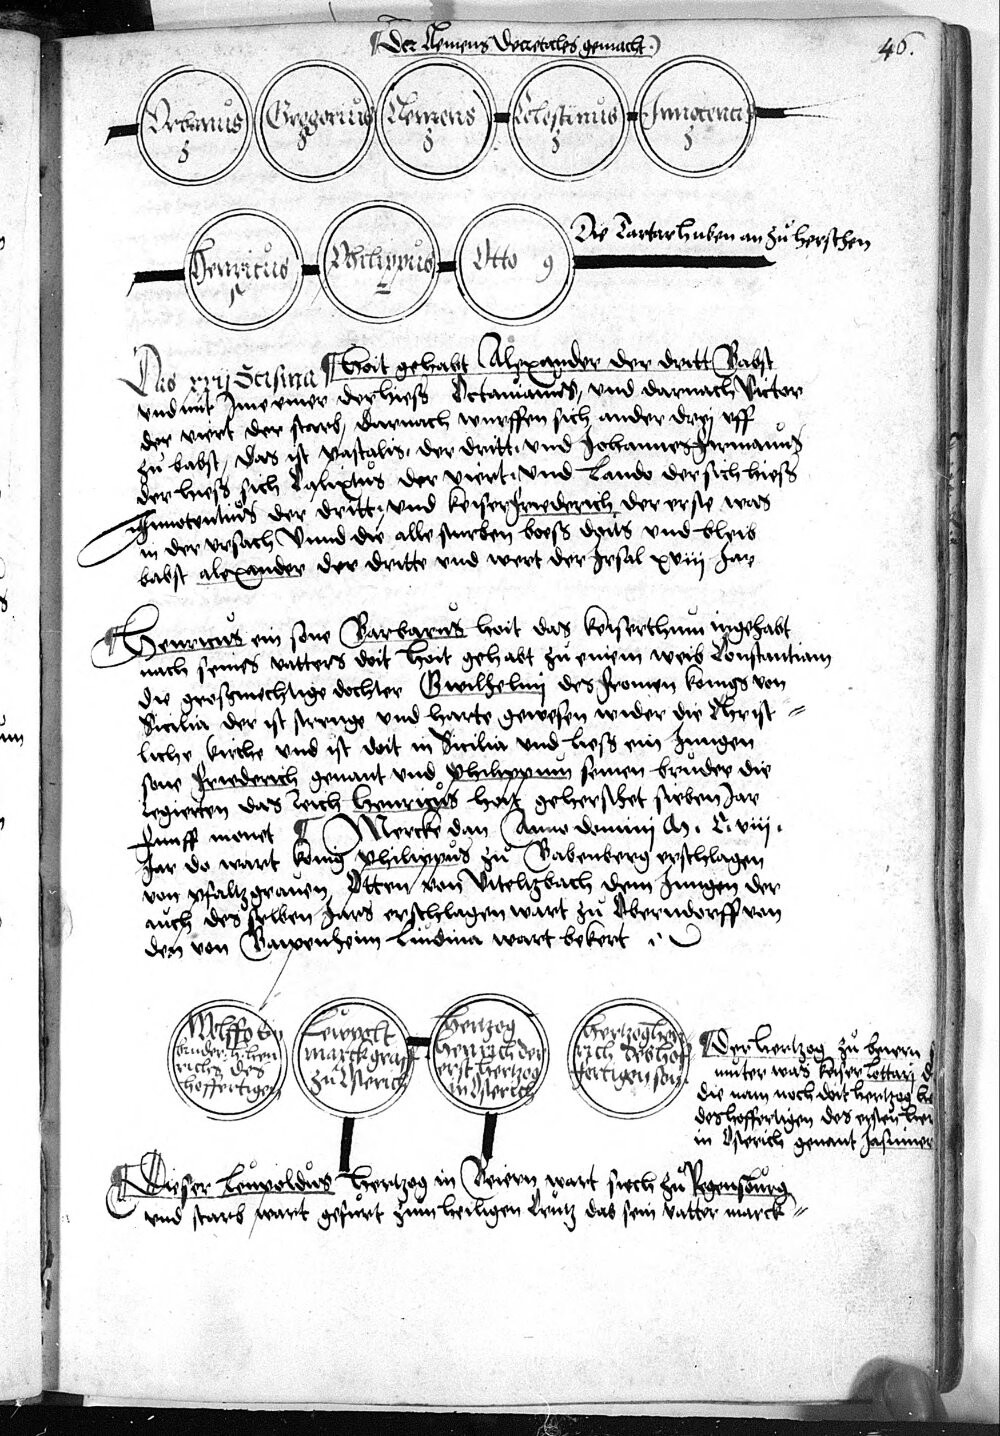 Der Clemens Decretales gemacht
46.
Urbanus 3
Gregorius 8
Clemens 3
Celestinus 3
Innocentius 3
Henricus
Philippus 2
Otto 9
Die Tartar huben an zů herschen
Das xxij Scisma Hoit gehabt Alexander der dritt Babst
und mit Ime einer der hiess Octavianus, und darnach Victor
der viert der starb, darnach wurffen sich ander drej uff
zů babst, das ist pastalis, der dritt, und Johannes
der hiess sich Calixtus der viert, und Lando der sich hiess
Innocentius der dritt, und keiser friederich der erste was
in der ursach Unnd die alle sturben boess doits und bleib
babst alexander der dritte und wert der Irsal xviij Jar
Henricus ein sone Barbarus hoit das keiserthum ingehabt
nach seines vatters doit hoit gehabt zů einem weib Constantiam
die groszmechtige dochter Gwilhelmj des fromen konigs von
Sicilia der ist strenge und harte gewesen wider die Christ =
liche kirche und ist doit in Sicilia und liess ein Jungen
sone friederich genant und philippum seinen bruder die
regierten das reich henricus hoit gehershet sieben Jar
funff monet Mercke dan Anno domini M. C. viij.
Jar do wart konig philippus zů Babenberg erschlagen
von pfaltzgraven Otten von Viteltzbach dem Jungen der
auch des selben Jars erschlagen wart zů Oberndorff von
den von Bappenheim Lindina wart bekert
Wolffo ein
bruder hein
richs des
hoffertigen
Leupolt
marckgraff
zů Osterich
Hertzog
Heinrich der
erst hertzog
in Osterich
Hertzog hein
rich des hof
fertigen son
Der hertzog zů beiern
muter was keiser lottari
die nam noch doit hertzog
des hoffertigen des ersten
in Osterich genant
Dieser Leupoldus hertzog in Beiern wart siech zů Regensburg
und starb wart gefurt zum heiligen Creutz das sein vatter marck =